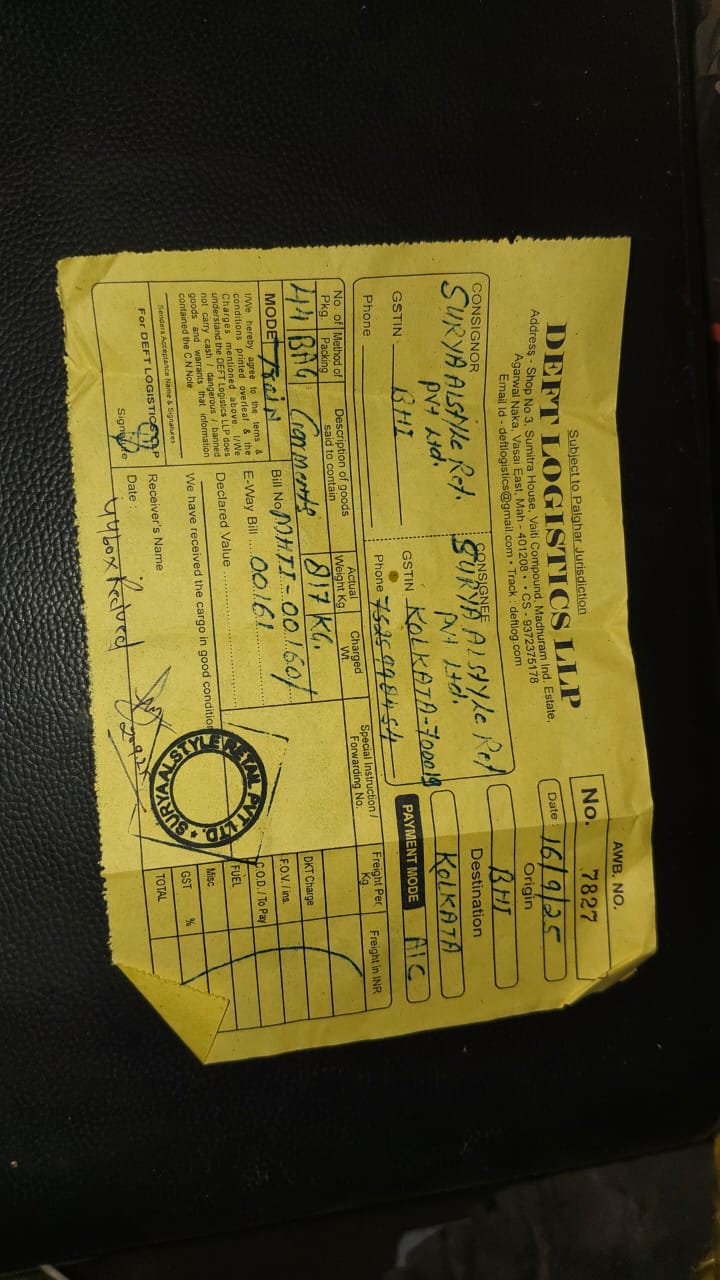 Subject to Palghar Jurisdiction
DEFT LOGISTICS LLP
Address - Shop No 3, Sumitra House, Vaiti Compound, Madhuram Ind. Estate,
Agarwal Naka, Vasai East, Mah - 401208 • • CS - 9372375178
Email Id - deftlogistics@gmail.com • Track : deftlog.com
AWB. NO.
No. 7827
Date : 16/9/25
Origin
BHI
Destination
KOLKATA
PAYMENT MODE A/C
CONSIGNOR
SURYA AlStyle Ret.
Pvt Ltd.
BHI
GSTIN
Phone
CONSIGNEE
SURYA AlStyle Ret
Pvt Ltd.
KOLKATA-700019
GSTIN
Phone 7525998454
No. of Pkg. Method of Packing Description of goods said to contain Actual Weight Kg. Charged Wt. Special Instruction / Forwarding No. Freight Per Kg. Freight in INR
44 BAG Garments 817 KG.
MODE Train
Bill No. MHTI-00160/
00161
E-Way Bill
Declared Value
I/We hereby agree to the items &
conditions printed overleaf & the
Charges mentioned above. I/We
understand the DEFT Logistics LLP does
not carry cash / dangerous / banned
goods and warrants that information
contained the C.N.Note.
Senders Acceptance Name & Signatures
For DEFT LOGISTICS LLP
Signature
We have received the cargo in good condition
Receiver's Name
Date :
44 box Recived
SURYA ALSTYLE RETAIL PVT LTD.
DKT Charge
F.O.V. / ins.
C.O.D. / To Pay
FUEL
Misc.
GST %
TOTAL